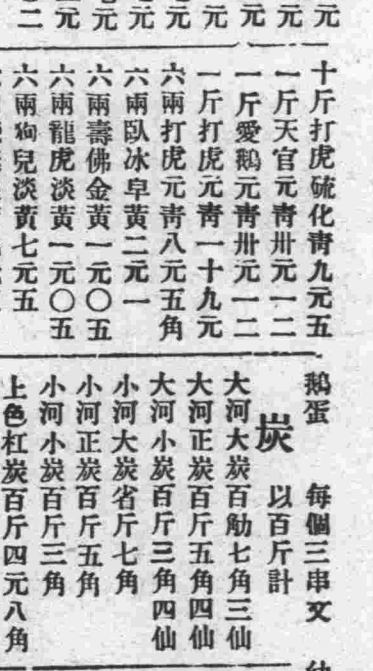 十斤打虎硫化靑九元五
一斤天官元靑卅元一二
一斤愛鵝元靑卅元一二
一斤打虎元靑一十九元
六兩打虎元靑八元五角
六兩臥冰皁黃二元一
六兩壽佛金黃一元〇五
六兩龍虎淡黃一元〇五
六兩狗兒淡黃七元五
鵝蛋 每個三串文
炭 以百斤計
大河大炭百觔七角三仙
大河正炭百斤五角四仙
大河小炭百斤三角四仙
小河大炭省斤七角
小河正炭百斤五角
小河小炭百斤三角
上色杠炭百斤四元八角